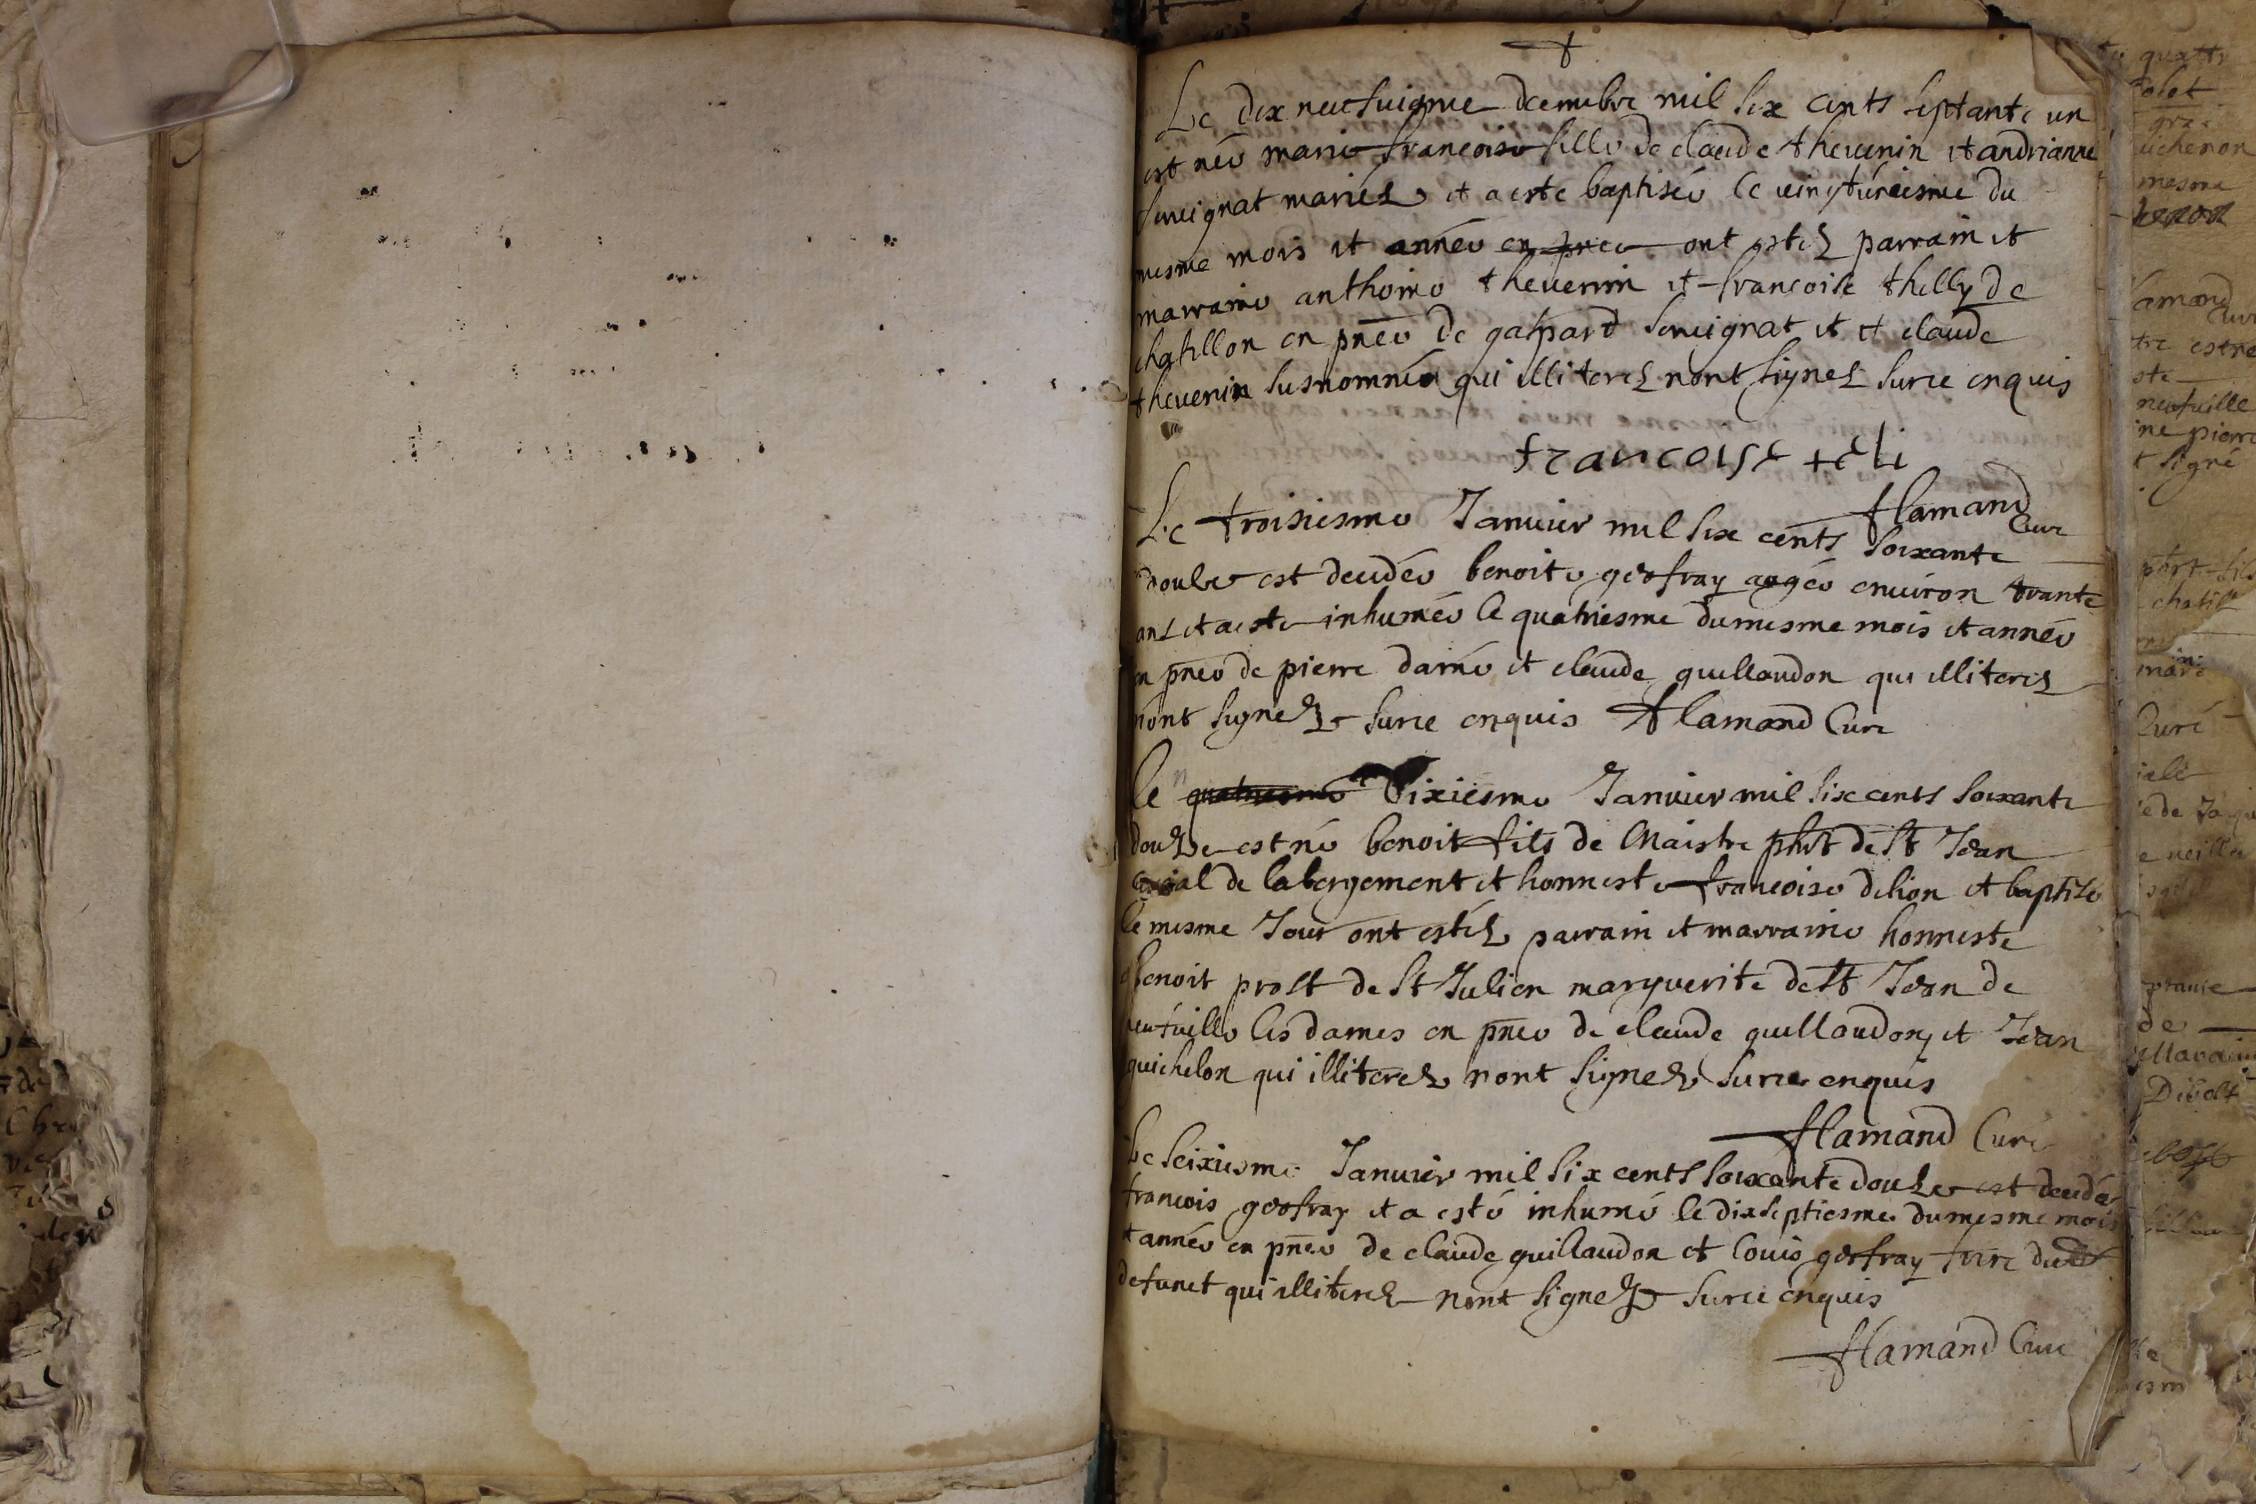 Le dix neufuigme decembre mil six cents septante un
est néé marie francoise fille de claude theuenin et andrianne
seruignat mariéz et a esté baptiséé le vingtuniesme du
mesme mois et annéé en pnce ont estéz parrain et
marraine anthoine theuenin et francoise thelly de
chatillon en pnce de gaspard seruignat et et claude
theuenin susnomnéz qui illiterez nont signez surce enquis
francoise teli
flamand
Curé
Le troisiesme Januier mil six cents soixante
douze est decedéé benoite geofray aagéé enuiron trante
ans et a este inhuméé le quatriesme du mesme mois et annéé
en pnce de pierre darné et claude guillaudon qui illiterez
nont signez surce enquis flamand Curé
le quatriesme sixiesme Januier mil six cents soixante
douze est né benoit fils de Maistre phit de st Jean
de labergement et honneste francoise delion et baptisé
le mesme Jour ont estéz parrain et marraine honneste
benoit prost de st Julien marguerite de st Jean de
neufuille les dames en pnce de claude guillaudon et Jean
guichelon qui illiterez nont signez surce enquis
flamand Curé
Le seixiesme Januier mil six cents soixante douze est decedé
francois geofray et a esté inhumé le dixseptiesme du mesme mois
et annéé en pnce de claude guillaudon et Louis geofray frere dudt
defunct qui illiterez nont signez surce enquis
flamand Curé